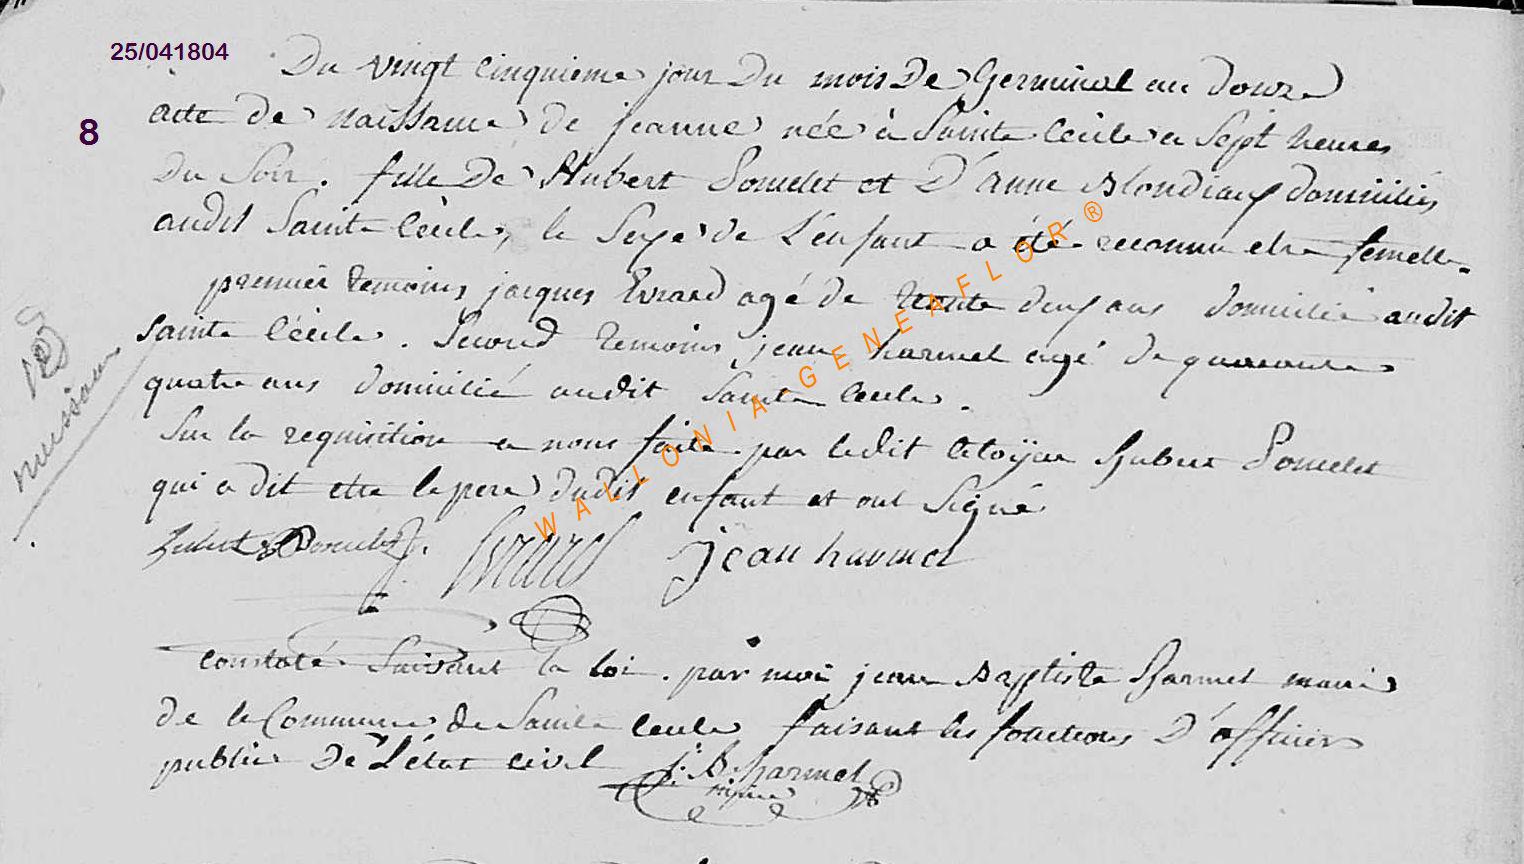 25/041804
8
Du vingt cinquieme jour Du mois De Germinal an Douze
acte de naissance de jeanne née à Sainte Cécile a Sept heures
du Soir. fille De Hubert Ponselet et D'anne Blondiaux domiciliés
audit Sainte Cécile, le Sexe de L'enfant a été reconnu etre femelle.
premier temoins jacques Evrard agé de trente deux ans domicilié audit
Sainte Cécile. Second temoins jean harmel agé de quarante
quatre ans domicilié audit Sainte Cecile.
Sur la requisition a nous faite par ledit Citoÿen Hubert Ponselet
qui a dit etre le pere dudit enfant et ont Signé
hubert Ponselet. Evrard jean harmel
constaté Suivant la loi. par moi jean Baptiste Harmel maire
de la Commune de Sainte Cecile faisant les fonctions D'officier
public De L'état civil j. B. harmel
maire
naissance
WALLONIA-GENEAFLOR®